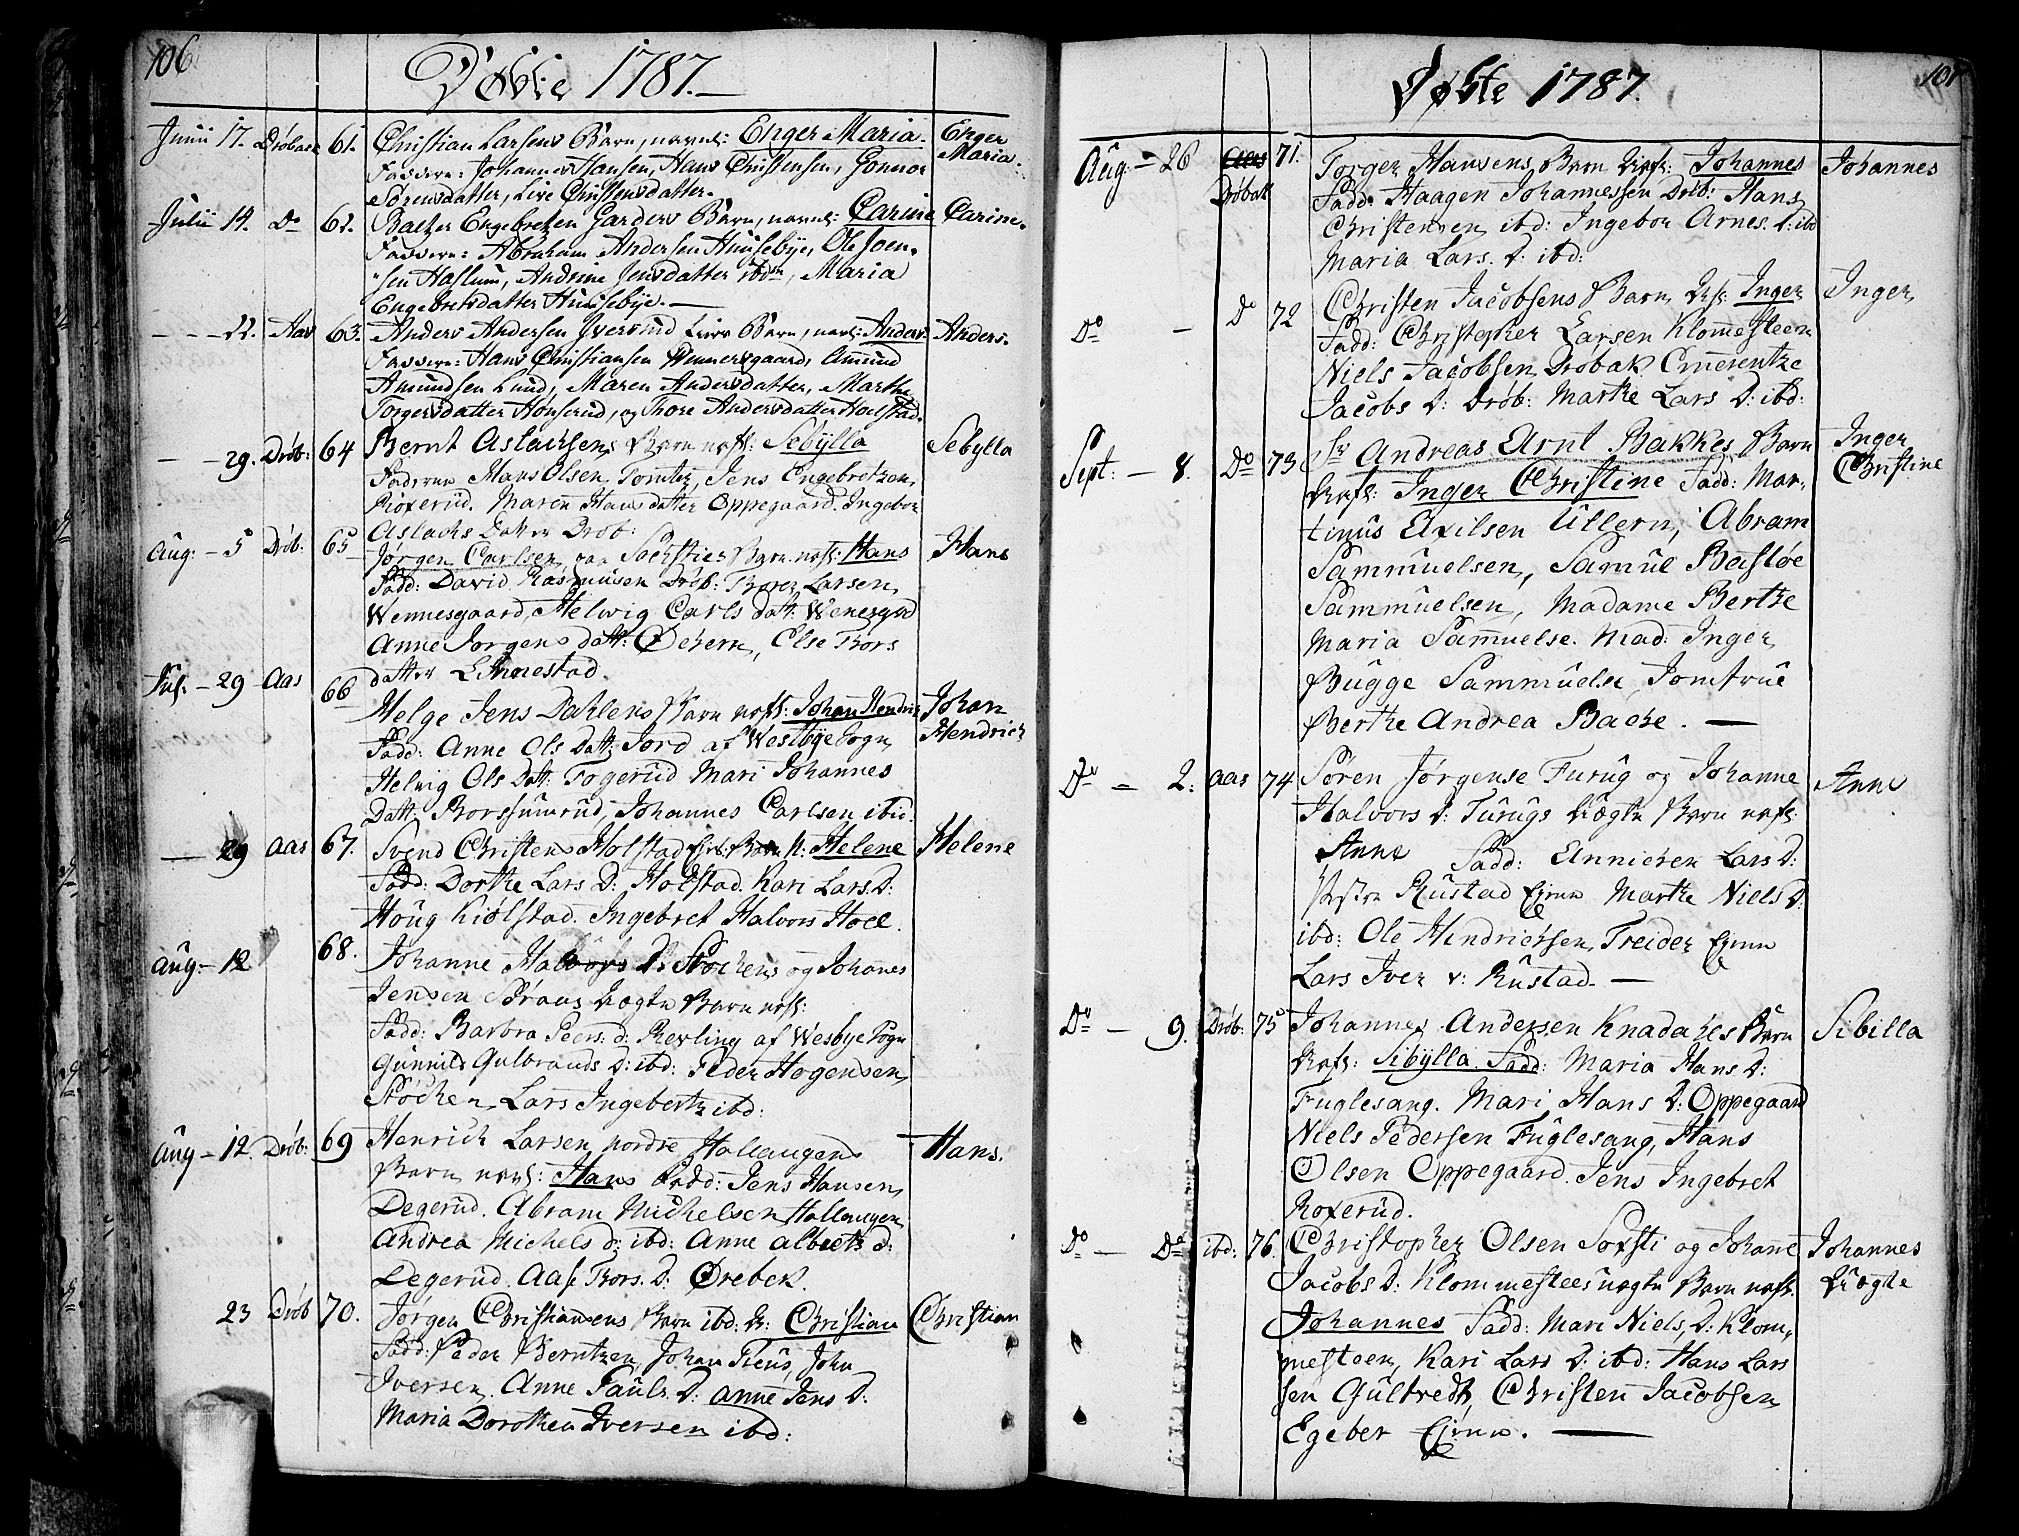 106
Døbte 1787.
Junii 17. Drøback 61. Christian Larsens Barn, navnl: Enger Maria. Enger Maria.
Faddere: Johannes Hansen, Hans Christensen, Gonnor
Sørensdatter, Live Christensdatter.
Julii 14. Do 62. Baltzer Engebretsen Garders Barn, navnl: Carine Carine.
Faddere: Abraham Andersen Huusebye, Ole Joen-
sen Haslum, Andrine Jensdatter ibdm, Maria
Engebretsdatter Huusebye.
22. Aas 63. Anders Andersen Iversrud Barn, navnl: Anders. Anders.
Faddere: Hans Christiansen Wennersgaard, Ammund
Amundsen Lund, Maren Andersdatter, Marthe
Torgersdatter Hønserud, og Thore Andersdatter Holstad.
29. Drøb: 64 Bernt Aslachsens Barn nafl: Sebylla Sebylla
Faderne Hans Olsen Tomter, Jens Engebretsen
Roxerud. Maren Hansdatter Oppegaard. Ingebor
Aslachs Datter Drøb:
Aug: 5 Drøb: 65 Jørgen Carlsen Barn nafl: Hans Hans
Fadd: David Rasmusen Drøb: Borer Larsen
Wennesgaard, Helwig Carls datt: Wenesgrd
Anne Jørgens datt: Økern, Else Tors
datter Limestad.
Jul. 29 Aas 66 Helge Jens Dahlens Barn nafl: Johan Hendrich Johan Hendrich
Fadd: Anne Ols Datt: Jord af Westbye Sogn
Helvig Ols Datt: Togerud Mari Johannes
Datt: Borssumrud, Johannes Carlsen ibid.
29 Aas 67. Svend Christens Holstad Barn N: Helene Helene
Fadd: Dorthe Lars D: Holstad. Kari Lars D:
Houg Kiølstad. Ingebret Halvors Hoel.
Aug: 12 68. Johanne Halvors D: Støckens og Johanes
Jensen Uægte Barn nafl:
Fadd: Barbra Peers: d: Revling af Wesbye Sogn
Gunnild Gulbrands D: ibd: Peder Hogensen
Støcken, Lars Ingebertz ibd:
Aug 12. Drøb: 69 Henrich Larsen nordre Hallangens Hans.
Barn nafl: Hans Fadd: Jens Hansen
Degerud. Abram Michelsen Hallangen
Andrea Michels d: ibd: Anne Alberts d:
Degerud. Aase Tors. D: Ørebek.
23 Drøb 70. Jørgen Christiansens Barn ibd: N: Christian Christian
Fadd: Peder Berntzen, Johan Theus, John
Iversen. Anne Pauls. D: Anne Jens D.
Maria Dorothea Iversen ibd:
107
Døbte 1787.
Aug: 26 Drøbak 71. Torger Hansens Barn Nafl: Johannes Johannes
Fadd: Haagen Johannessen Drøb: Hans
Christensen ibd: Ingebor Arnes. D: ibd
Maria Lars. D: ibd:
Do - Do 72 Christen Jacobsens Barn Nafl: Inger Inger
Fadd: Christopher Larsen Klommesteen
Niels Jacobsen Drøbak. Emerentze
Jacobs D: Drøb: Marthe Lars D: ibd:
Sept: 8. Do 73 Sr Andreas Arnt Bakkes Barn Inger Christine
Nafl: Inger Christine Fadd: Mar-
tinus Exilsen Ullern, Abram
Sammuelsen, Samuel Bastøe
Sammuelsen, Madame Berthe
Maria Sammuelse. Mad: Inger
Bugge Sammuelse, Jomfrue
Berthe Andrea Backe.
Do 2: Aas 74 Søren Jørgense Furug og Johanne Anne
Halvors D: Furugs Uægte Barn nafl:
Anne Fadd: Annichen Lars D:
Rustad Marthe Niels D:
ibd: Ole Hindrichsen, Treider
Lars Iver v: Rustad.
Do 9. Drøb: 75 Johannes Andersen Knadahls Barn Sibilla
Nafl: Sibylla. Fadd: Maria Hans D:
Fuglesang. Mari Hans D: Oppegaard
Niels Pedersen Fuglesang, Hans
Olsen Oppegaard. Jens Ingebret
Roxerud.
Do Do ibd: 76. Christopher Olsen Soxsti og Johane Johannes Uægte
Jacobs D: Klommesteens uægte Barn nafl.
Johannes Fadd: Mari Niels D: Klom-
mesteen, Kari Lars D: ibd: Hans Lars
sen Gultvedt, Christen Jacobsen
Egeber